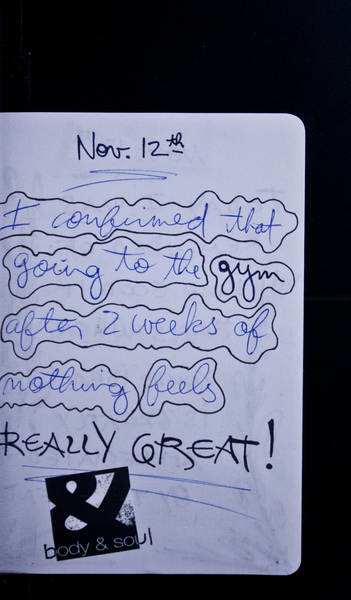 Nov. 12th
I confirmed that
going to the gym
after 2 weeks of
nothing feels
REALLY GREAT!
&
body & soul